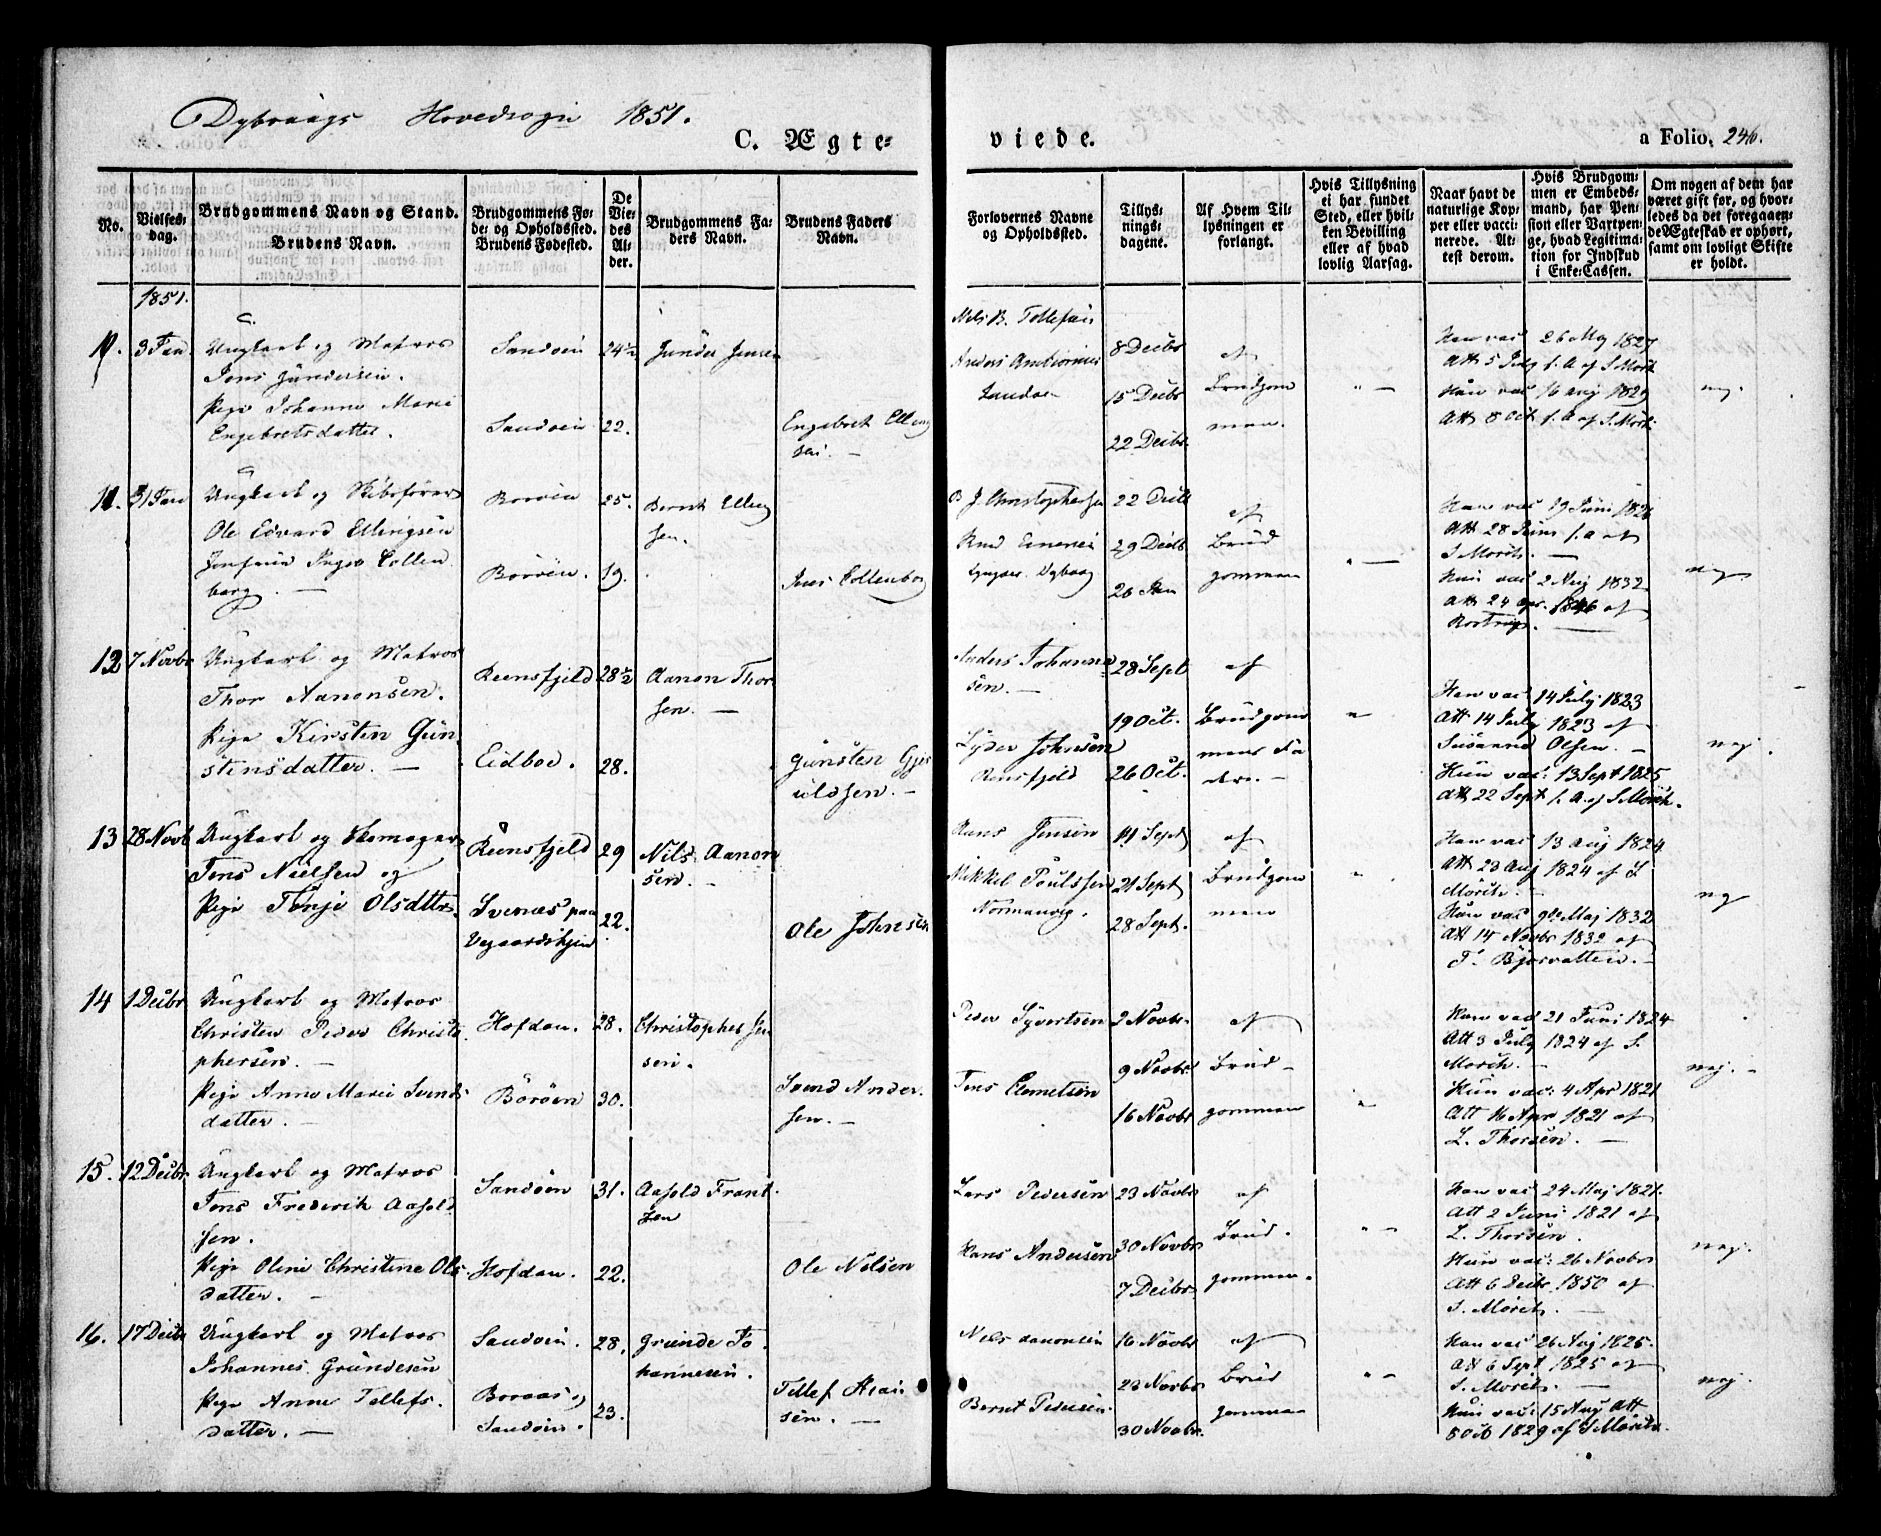 Dybvaags Hovedsogn 1851.
C. Ægte-
viede.
a Folio. 246.
No.
Vielses-
dag.
Brudgommens Navn og Stand.
Brudens Navn.
Brudgommens Fø-
de- og Opholdssted.
Brudens Fødested.
De
Vie-
des
Al-
der.
Brudgommens Fa-
ders Navn.
Brudens Faders
Navn.
Forlovernes Navne
og Opholdssted.
Tillys-
nings-
dagene.
Af Hvem Til-
lysningen er
forlangt.
Hvis Tillysning
ei har fundet
Sted, eller hvil-
ken Bevilling
eller af hvad
lovlig Aarsag.
Naar havt de
naturlige Kop-
per eller vacci-
nerede. At-
test derom.
Hvis Brudgom-
men er Embeds-
mand, har Pen-
sion eller Vartpen-
ge, hvad Legitima-
tion for Indskud
i Enke-Cassen.
Om nogen af dem har
været gift før, og hvor-
ledes da det foregaaen-
de Ægteskab er ophørt,
samt om lovligt Skifte
er holdt.
1851.
3 Jan.
Ungkarl og Matros
Jens Gundersen.
Pige Johanne Marie
Engebretsdatter.
Sandøen
Sandøen
24½
22.
Gunder Jensen
Engebret Elling
sen. —
Nils B. Tellefsen
Sandøe
8 Decbr
15 Decbr
22 Decbr.
af
Brudgom
men.
" —
Han vac 26 May 1827
Att 5 July s. A af S Mörch
Hun vac 16 Aug 1829
Att 8 Oct s. A af S. Mörch
nej.
11.
31 Jan
Ungkarl og Skibsfører
Ole Edvard Ellingsen
Inger Collen
berg. —
Borøen
Borøen.
25.
19.
Bernt Elling
sen.
Jens Collenberg
B J. Christophersen
Lyngøer. Dybvaag
22 Decb
29 Decb
26 Jan
af
Brud
gommen
" —
Han vac 19 Juni 1826
Att 28 Juni s. a af
S Mörch. —
Hun vac 2 Aug 1832
Att 24 Apr. 1846 af
nej.
12
7 Novbr
Ungkarl og Matros
Thor Aanonsen.
Pige Kirsten Gun
stensdatter. —
Reensfjeld
Eidboe.
28½
28.
Aanon Thor
sen. —
Gunsten Gjer
uldsen. —
Anders Johanne
sen. —
Lyder Johnsen
Rensfjeld
28 Sept
19 Oct.
26 Oct.
af
Brudgom
mens Fa
der. —
"
Han vac 14 July 1823
Att 14 July 1823 af
Susanne Olsen. —
Hun vac: 13 Sept 1825
Att 22 Sept s. A. af S Mörch.
nej.
13
28 Novb
Ungkarl og Skomager
Jens Nielsen og
Pige Tonje Olsdtter.
Reensfjeld
Svenæs paa
Vegaardskjen
29
22.
Nils Aanon
sen. —
Ole Johnsen
Hans Jensen
Mikkel Poulssen
Normanvig.
14 Sept
21 Sept
28 Sept.
af
Brudgom
men
"
Han vac 13 Aug 1824
Att 23 Aug 1824 af S
Mörch. —
Hun vac 9de Maj 1832
Att 14 Novbr 1832 af
T. Bjorvatten. —
nej
14
1 Decbr
Ungkarl og Matros
Christen Peder Christo
phersen. —
Pige Anne Marie Svends
datter. —
Hofdan.
Borøen
28.
30.
Christopher Jen
sen.
Svend Ander
sen. —
Peder Syvertsen
Jens Clemetsen
2 Novbr.
9 Novbr
16 Novbr
af
Brud —
gommen
"
Han vac 21 Juni 1824
Att 3 July 1824 af S.
Mörch. —
Hun vac: 4 Apr 1821
Att 16 Apr 1821 af
L. Thorsen. —
nej. —
15.
12 Decbr
Ungkarl og Matros
Jens Frederik Aasold
sen.
Pige Oline Christine Ols
datter. —
Sandøen
Hofdan.
31.
22.
Aasold Frant
zen
Ole Nilsen
Lars Pedersen
Hans Andersen
23 Novbr
30 Novbr
7 Decbr
af
Brud.
gommen.
" —
Han vac 24 Maj 1821.
Att 2 Juni 1821 af
L. Thorsen. —
Hun vac: 26 Novbr
Att 6 Decbr 1850 af
S. Mörch. —
nej.
16.
17 Decbr
Ungkarl og Matros
Johannes Grundesen
Pige Anne Tellefs.
datter. —
Sandøen.
Boraas og
Sandøen.
28.
23.
Grunde Jo
hannesen.
Tellef Asai
sen. —
Nels Aanonsen
Bernt Pedersen.
16 Novbr
23 Novbr
30 Novbr.
af
Brud
gommen
" —
Han vac 26 Aug 1825.
Att 6 Sept 1825 af
S. Mörch. —
Hun vac: 15 Aug Att
8 Oct 1829 af S Mörch.
nej.